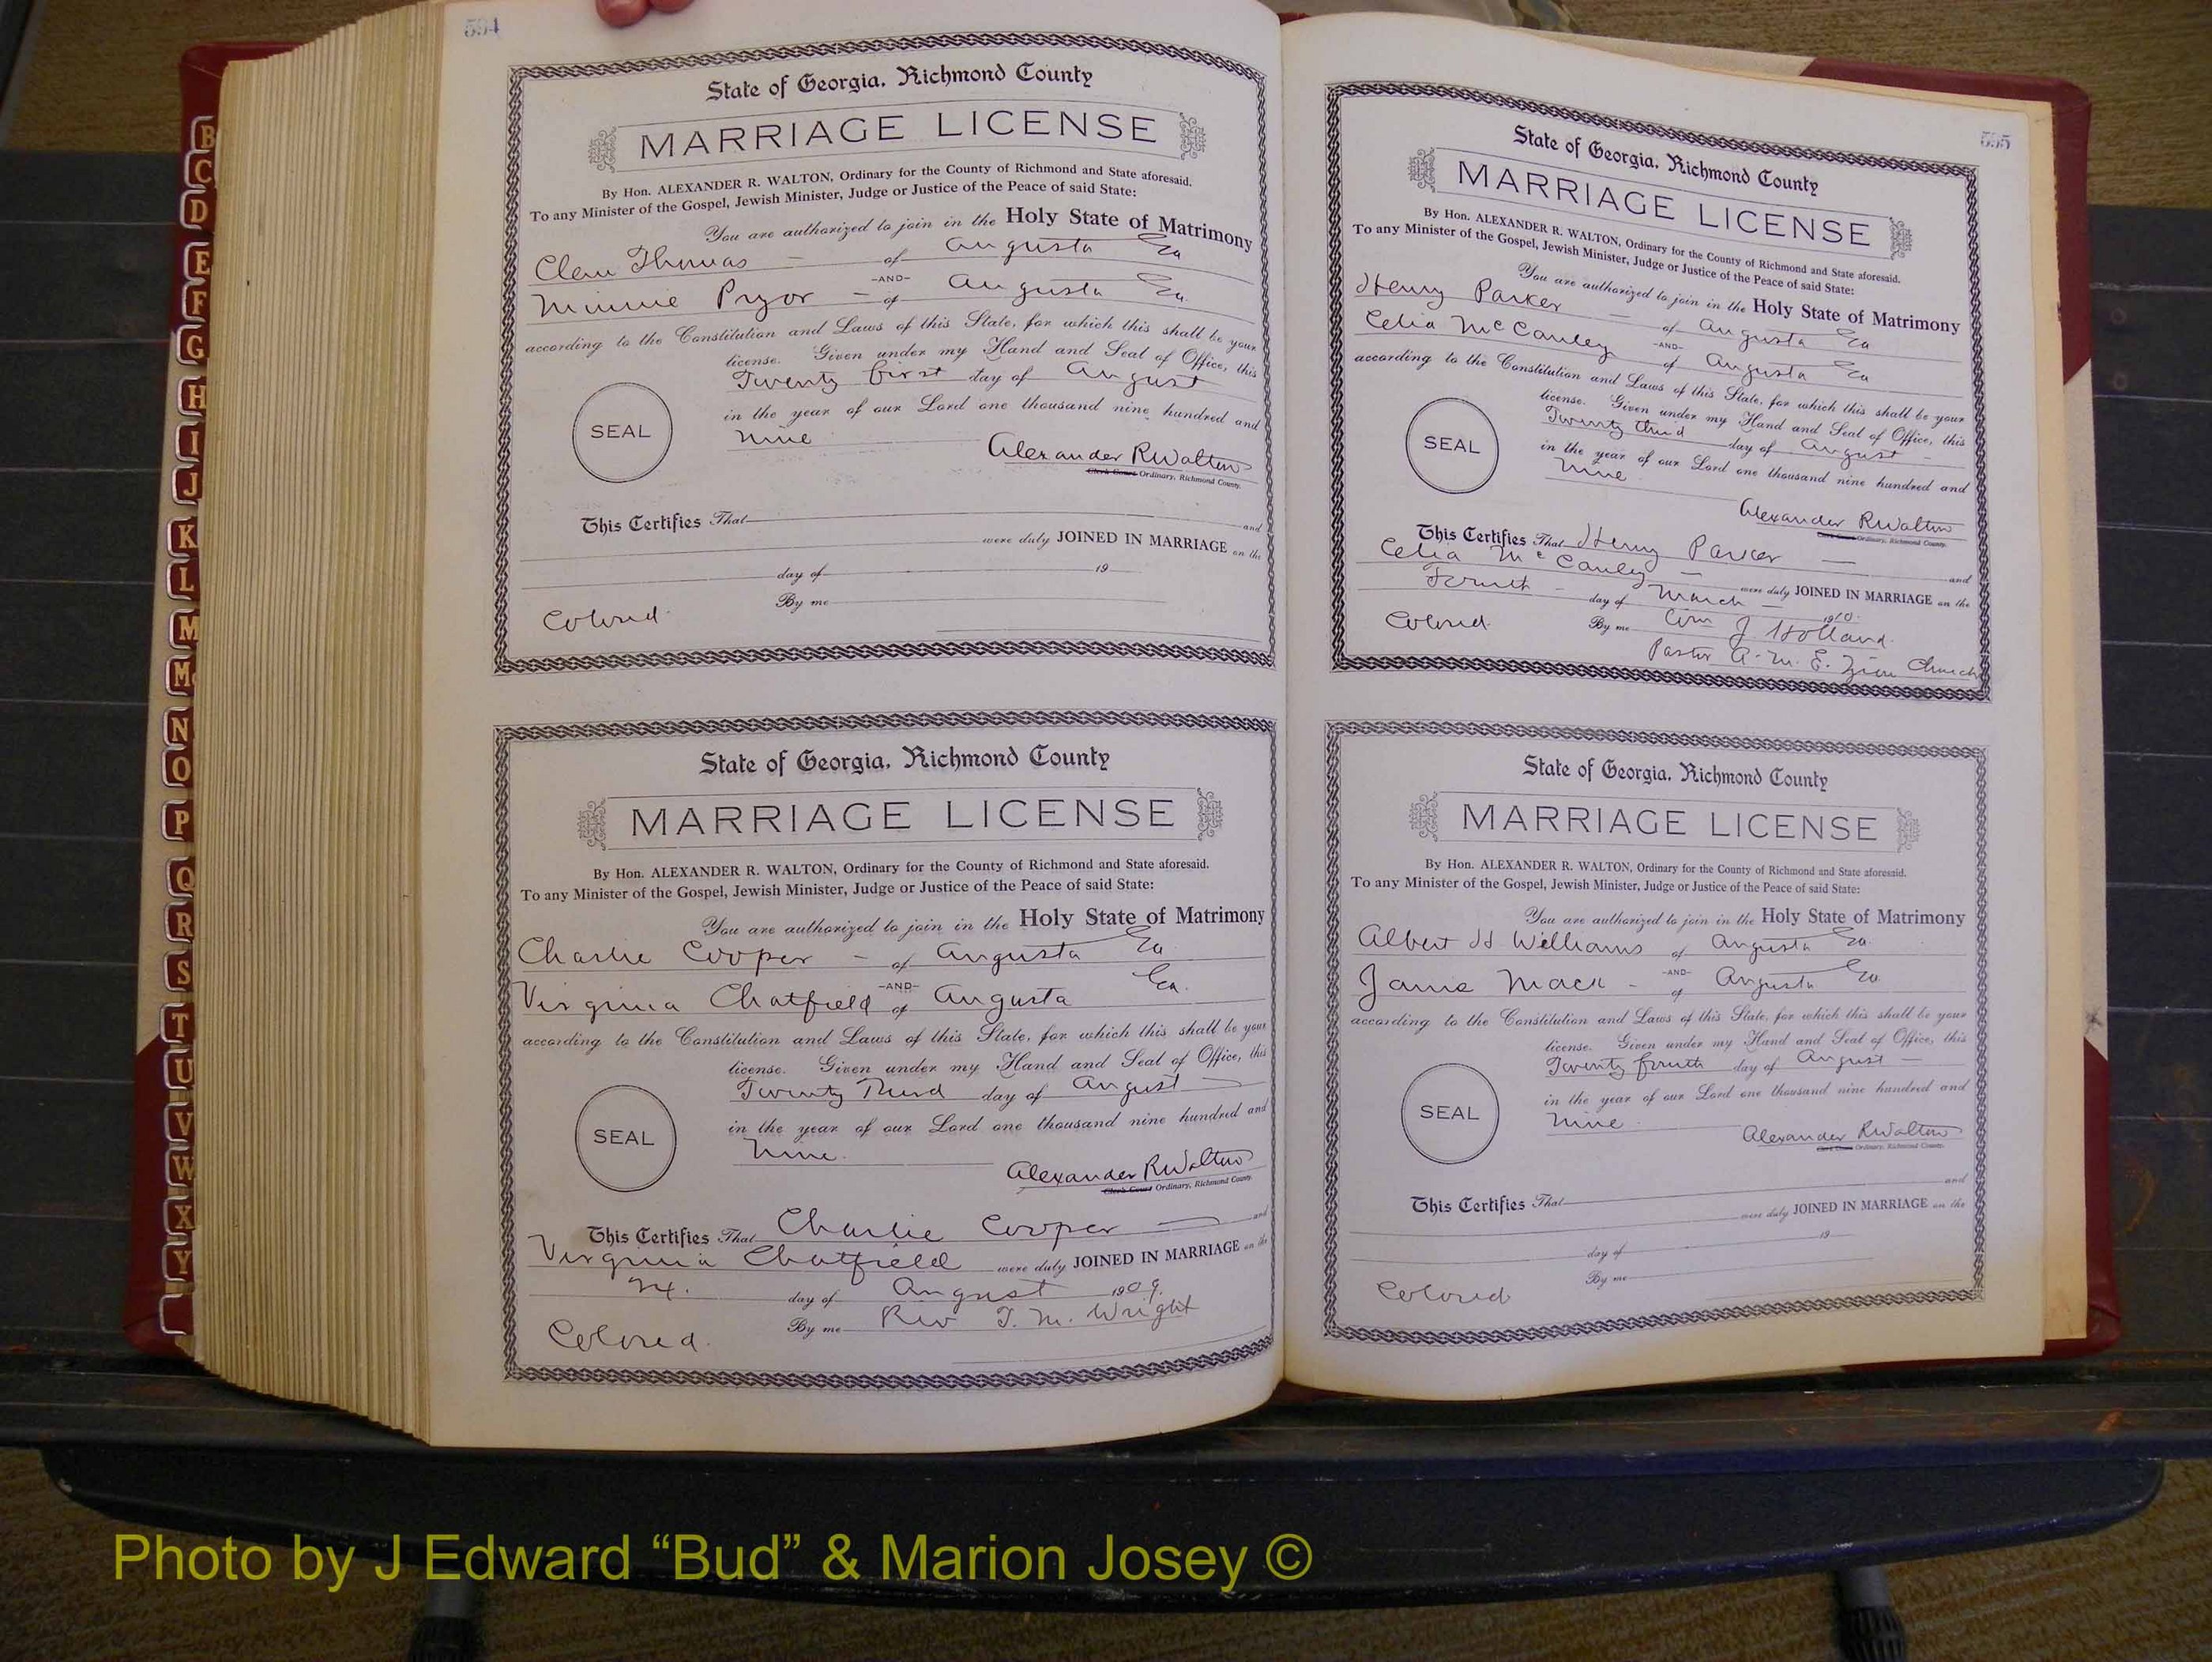 594
State of Georgia, Richmond County
MARRIAGE LICENSE
By Hon. ALEXANDER R. WALTON, Ordinary for the County of Richmond and State aforesaid.
To any Minister of the Gospel, Jewish Minister, Judge or Justice of the Peace of said State:
You are authorized to join in the Holy State of Matrimony
Clem Thomas - of Augusta Ga
-AND-
Minnie Pryor - of Augusta Ga.
according to the Constitution and Laws of this State, for which this shall be your
license. Given under my Hand and Seal of Office, this
Twenty first day of August
in the year of our Lord one thousand nine hundred and
SEAL
nine
Alexander R Walton
Clerk Court Ordinary, Richmond County.
This Certifies That and
were duly JOINED IN MARRIAGE on the
day of 19
Colored By me
State of Georgia, Richmond County
MARRIAGE LICENSE
By Hon. ALEXANDER R. WALTON, Ordinary for the County of Richmond and State aforesaid.
To any Minister of the Gospel, Jewish Minister, Judge or Justice of the Peace of said State:
You are authorized to join in the Holy State of Matrimony
Charlie Cooper - of Augusta Ga
-AND-
Virginia Chatfield of Augusta Ga.
according to the Constitution and Laws of this State, for which this shall be your
license. Given under my Hand and Seal of Office, this
Twenty Third day of August
in the year of our Lord one thousand nine hundred and
SEAL
Nine.
Alexander R Walton
Clerk Court Ordinary, Richmond County.
This Certifies That Charlie Cooper and
Virginia Chatfield were duly JOINED IN MARRIAGE on the
24. day of August 1909.
Colored. By me Rev T. M. Wright
595
State of Georgia, Richmond County
MARRIAGE LICENSE
By Hon. ALEXANDER R. WALTON, Ordinary for the County of Richmond and State aforesaid.
To any Minister of the Gospel, Jewish Minister, Judge or Justice of the Peace of said State:
You are authorized to join in the Holy State of Matrimony
Henry Parker - of Augusta Ga
-AND-
Celia McCauley of Augusta Ga
according to the Constitution and Laws of this State, for which this shall be your
license. Given under my Hand and Seal of Office, this
Twenty third day of August -
in the year of our Lord one thousand nine hundred and
SEAL
Nine
Alexander R Walton
Clerk Court Ordinary, Richmond County.
This Certifies That Henry Parker - and
Celia McCauley - were duly JOINED IN MARRIAGE on the
Fourth - day of March - 1910.
Colored. By me Wm J Holland.
Pastor A. M. E. Zion Church
State of Georgia, Richmond County
MARRIAGE LICENSE
By Hon. ALEXANDER R. WALTON, Ordinary for the County of Richmond and State aforesaid.
To any Minister of the Gospel, Jewish Minister, Judge or Justice of the Peace of said State:
You are authorized to join in the Holy State of Matrimony
Albert H Williams of Augusta Ga.
-AND-
Janie Mack - of Augusta Ga
according to the Constitution and Laws of this State, for which this shall be your
license. Given under my Hand and Seal of Office, this
Twenty fourth day of August -
in the year of our Lord one thousand nine hundred and
SEAL
Nine
Alexander R Walton
Clerk Court Ordinary, Richmond County.
This Certifies That and
were duly JOINED IN MARRIAGE on the
day of 19
Colored By me
B
C
D
E
F
G
H
I
J
K
L
M
Mc
N
O
P
Q
R
S
T
U
V
W
X
Y
Photo by J Edward “Bud” & Marion Josey ©